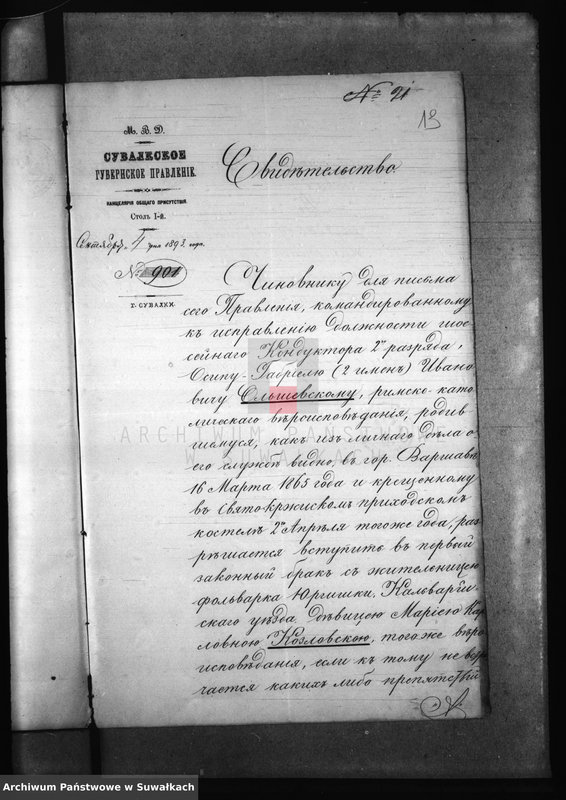 № 91
13
М. В. Д.
СУВАЛКСКОЕ
ГУБЕРНСКОЕ ПРАВЛЕНІЕ.
КАНЦЕЛЯРІЯ ОБЩАГО ПРИСУТСТВІЯ.
Столъ 1-й.
Сентября 4 дня 1893 года.
№ 901
Г. СУВАЛКИ.
Свидѣтельство.
Чиновнику для письма
сего Правленія, командированному
къ исправленію должности шос
сейнаго Кондуктора 2го разряда,
Осипу-Габріелю (2 именъ) Ивано
вичу Ольшевскому, римско-като
лическаго вѣроисповѣданія, родив
шемуся, какъ изъ личнаго дѣла о
его службѣ видно, въ гор. Варшавѣ
16 Марта 1865 года и крещенному
въ Свято-Кржискомъ приходскомъ
костелѣ 2го Апрѣля того же года, раз
рѣшается вступить въ первый
законный бракъ съ жительницею
фольварка Юргишки, Кальварій
скаго уѣзда, дѣвицею Маріею Кар
ловною Козловскою, того же вѣро
исповѣданія, если къ тому не встрѣ
чается какихъ либо препятствій
ARCHIWUM PAŃSTWOWE
W SUWAŁKACH
Archiwum Państwowe w Suwałkach